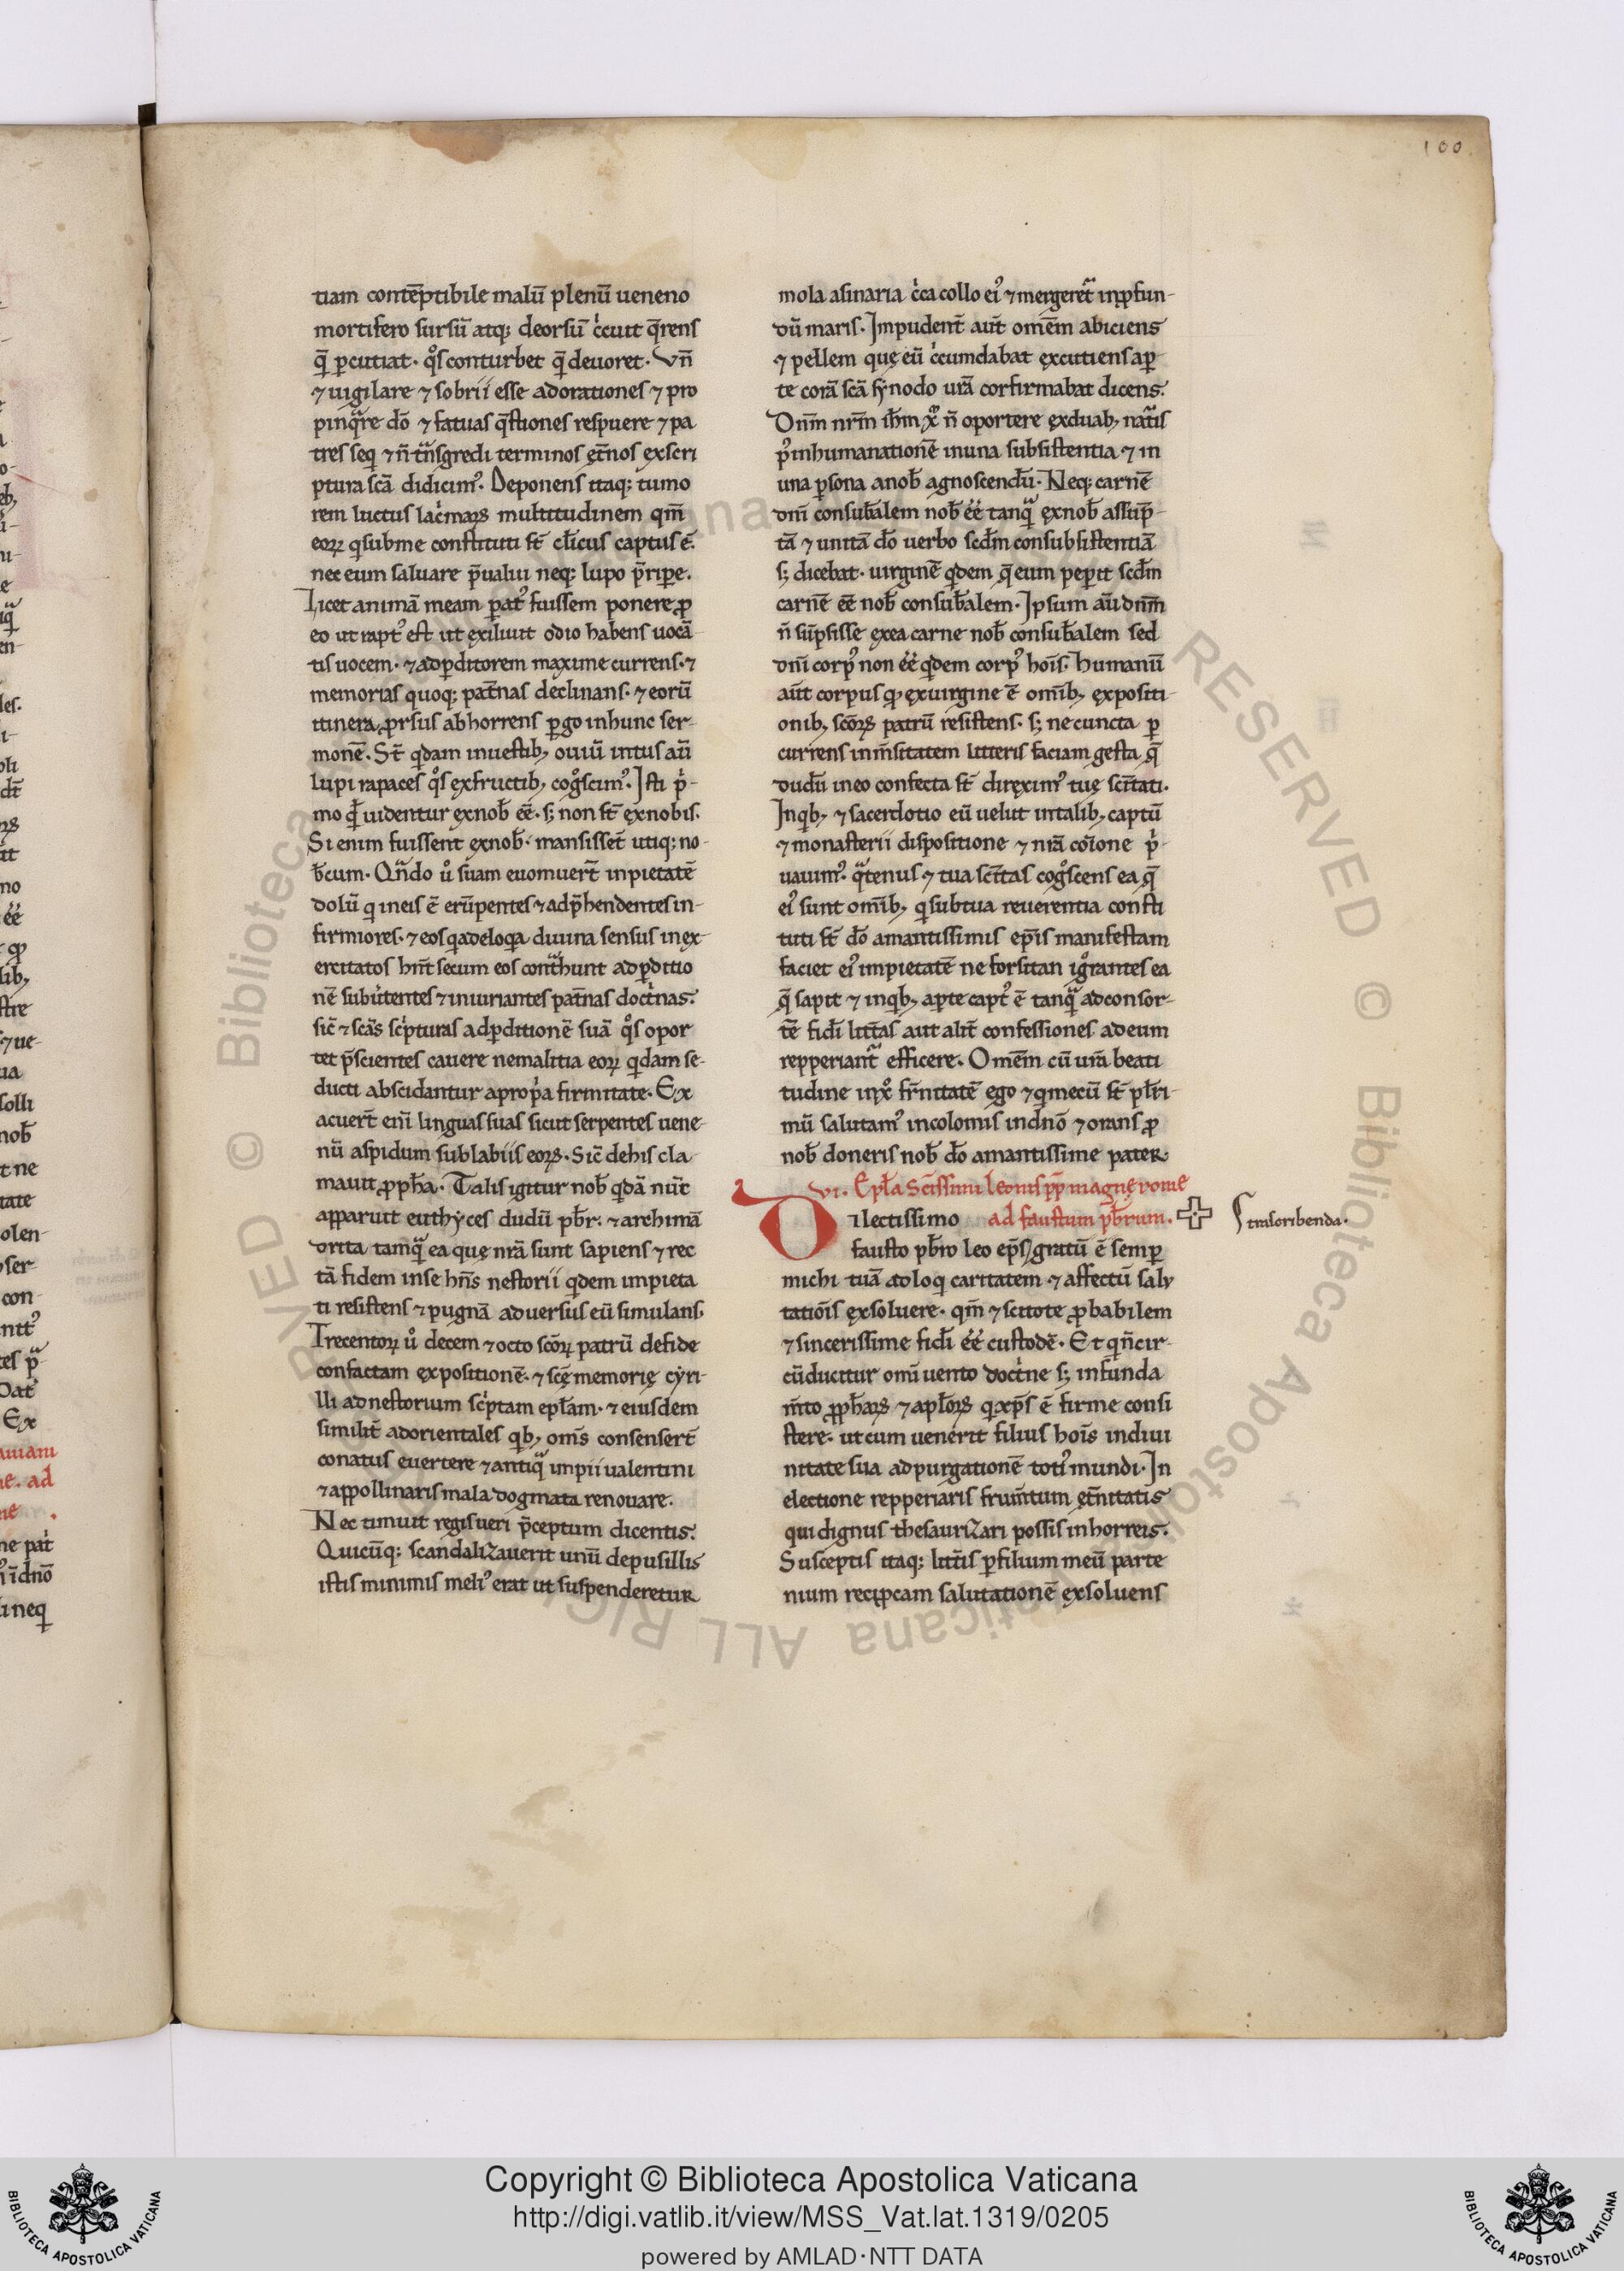 100
tiam contēptibile malū plenū ueneno
mortifero sursū atq; deorsū c̓cuit q̄rens
q̄ ꝑcutiat. qͦs conturbet q̄ deuoret. Vn̄
⁊ uigilare ⁊ sobrii esse ad orationes ⁊ pro
pinq̄re dō ⁊ fatuas q̄stiones respuere ⁊ pa
tres seq ⁊ n̄ tn̄sgredi terminos et̄nos ex scri
ptura scā didicim᾿. Deponens itaq; tumo
rem luctus lac̓mar̄ multitudinem qm̄
eoꝝ q sub me constituti st̄ cl̄icus captus ē.
nec eum saluare p̄ualui neq; lupo p̄riꝑe.
Licet animā meam parat᾿ fuissem ponere ꝓ
eo ut rapt᾿ est ut exiliuit odio habens uocā
tis uocem. ⁊ ad ꝑditorem maxime currens. ⁊
memorias quoq; pat̄nas declinans. ⁊ eorū
itinera ꝓrsus abhorrens ꝑgo in hunc ser-
monē. St̄ qdam in uestib; ouiū intus aū
lupi rapaces qͦs ex fructib; cogͦscim᾿. Isti p̓-
mo qͥ uidentur ex nob̄ eē. s; non st̄ ex nobis.
Si enim fuissent ex nob̄. mansissēt utiq; no-
b̄cum. Qn̄do u̓ suam euomuer̄t inpietatē
dolū q in eis ē erūpentes ⁊ adp̄hendentes in-
firmiores. ⁊ eos q ad eloqa diuina sensus inex-
ercitatos hn̄t secum eos cont̄hunt ad ꝑditio
nē subuertentes ⁊ iniuriantes pat̄nas doct̓nas.
sic̄ ⁊ scās sc̓pturas ad ꝑditionē suā qͦs opor
tet p̄scientes cauere ne malitia eoꝝ qdam se-
ducti abscidantur a prop̓a firmitate. Ex
acuer̄t eni linguas suas sicut serpentes uene-
nū aspidum sub labiis eoꝝ. Sic̄ de his cla-
mauit ꝓph̄a. Talis igitur nob̄ qdā nūc
apparuit euthyces dudū pb̄r. ⁊ archimā
drita tamq̄ ea que nrā sunt sapiens ⁊ rec
tā fidem in se hn̄s nestorii qdem impieta
ti resistens ⁊ pugnā aduersus eū simulans.
Trecentoꝝ u̓ decem ⁊ octo scōꝝ patrū de fide
confactam expositionē. ⁊ scę memorię cyri-
lli ad nestorium sc̓ptam epl̄am. ⁊ eiusdem
similit̄ ad orientales qb; om̄s consenser̄t
conatus euertere ⁊ antiq̄ impii ualentini
⁊ appollinaris mala dogmata renouare.
Nec timuit regis ueri p̄ceptum dicentis.
Quicūq; scandalizauerit unū de pusillis
istis minimis meli᾿ erat ut suspenderetur
mola asinaria c̓ca collo ei᾿ ⁊ mergeret̄ in ꝓfun-
dū maris. Impudent̄ aut̄ omēm abiciens
⁊ pellem quę eū c̓cumdabat excutiens aꝑ
te corā scā synodo urā confirmabat dicens.
Dn̄m nr̄m ih̄m xp̄ n̄ oportere ex duab; nat̄is
p᾿ inhumanationē in una subsistentia ⁊ in
una ꝑsona a nob̄ agnoscendū. Neq; carnē
dni consub̄alem nob̄ eē tanq̄ ex nob̄ assūp-
tā ⁊ unitā dō uerbo scd̄m consubsistentiā
s; dicebat. uirginē qdem q̄ eum peꝑit scd̄m
carnē eē nob̄ consub̄alem. Ipsum aū dn̄m
n̄ sūpsisse ex ea carne nob̄ consub̄alem sed
dni corp᾿ non eē qdem corp᾿ hois. humanū
aut̄ corpus qđ ex uirgine ē om̄ib; expositi-
onib; scōꝝ patrū resistens. s; ne cuncta ꝑ
currens in m̄sitatem litteris faciam gesta q̄
dudū in eo confecta st̄ direxim᾿ tuę sc̄itati.
In qb; ⁊ sacerdotio eū uelut in talib; captū
⁊ monasterii dispositione ⁊ nrā coīone p̓-
uauim᾿. q̄tenus ⁊ tua sc̄itas cogͦscens ea q̄
ei᾿ sunt om̄ib; q sub tua reuerentia consti
tuti st̄ dō amantissimis ep̄is manifestam
faciet ei᾿ impietatē ne forsitan igͦrantes ea
q̄ sapit ⁊ in qb; aꝑte capt᾿ ē tanq̄ ad consor-
tē fidi litt̄as aut alit̄ confessiones ad eum
repperiant̄ efficere. Omēm cū urā beati
tudine in xp̄ fr̄nitatē ego ⁊ q mecū st̄ pl̄ri-
mū salutam᾿ incolomis in dnō ⁊ orans ꝓ
nob̄ doneris nob̄ dō amantissime pater.
VI. Epl̄a Sc̄issimi leonis pp̄ magnę rome
Dilectissimo ad faustum pb̄rum.
Transcribenda.
fausto pb̄ro leo ep̄s gratū ē semꝑ
michi tuā adloq caritatem ⁊ affectū salu
tatiōis exsoluere. qm̄ ⁊ scito te ꝓbabilem
⁊ sincerissime fidi eē custodē. Et q n̄ cir-
cūducitur omi uento doct̓ne s; in funda
m̄to ꝓph̄aꝝ ⁊ apl̄oꝝ q xp̄s ē firme consi
stere. ut cum uenerit filius hois in diui
nitate sua ad purgationē toti᾿ mundi. In
electione repperiaris frum̄tum et̄nitatis
qui dignus thesaurizari possis in horreis.
Susceptis itaq; litt̄is ꝑ filium meū parte
nium reciꝓcam salutationē exsoluens
Copyright © Biblioteca Apostolica Vaticana
http://digi.vatlib.it/view/MSS_Vat.lat.1319/0205
powered by AMLAD·NTT DATA
BIBLIOTECA APOSTOLICA VATICANA
BIBLIOTECA APOSTOLICA VATICANA